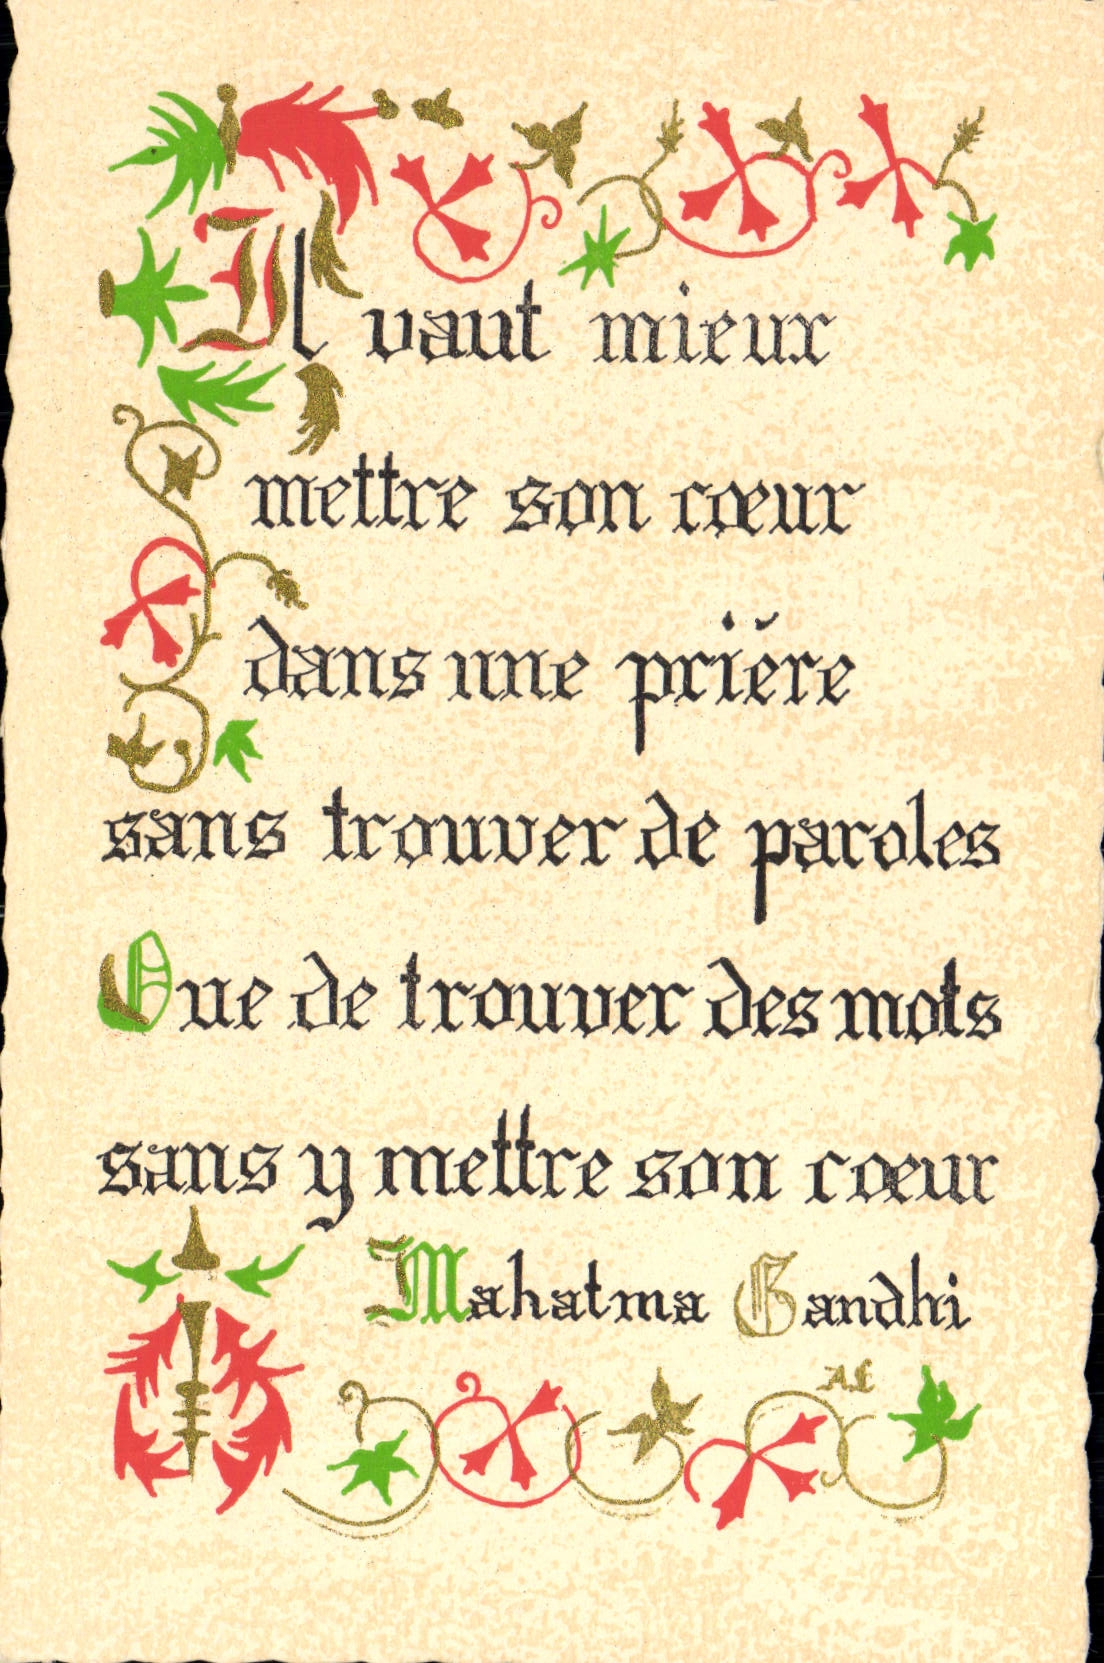 Il vaut mieux
mettre son cœur
dans une prière
sans trouver de paroles
Que de trouver des mots
sans y mettre son cœur
Mahatma Gandhi